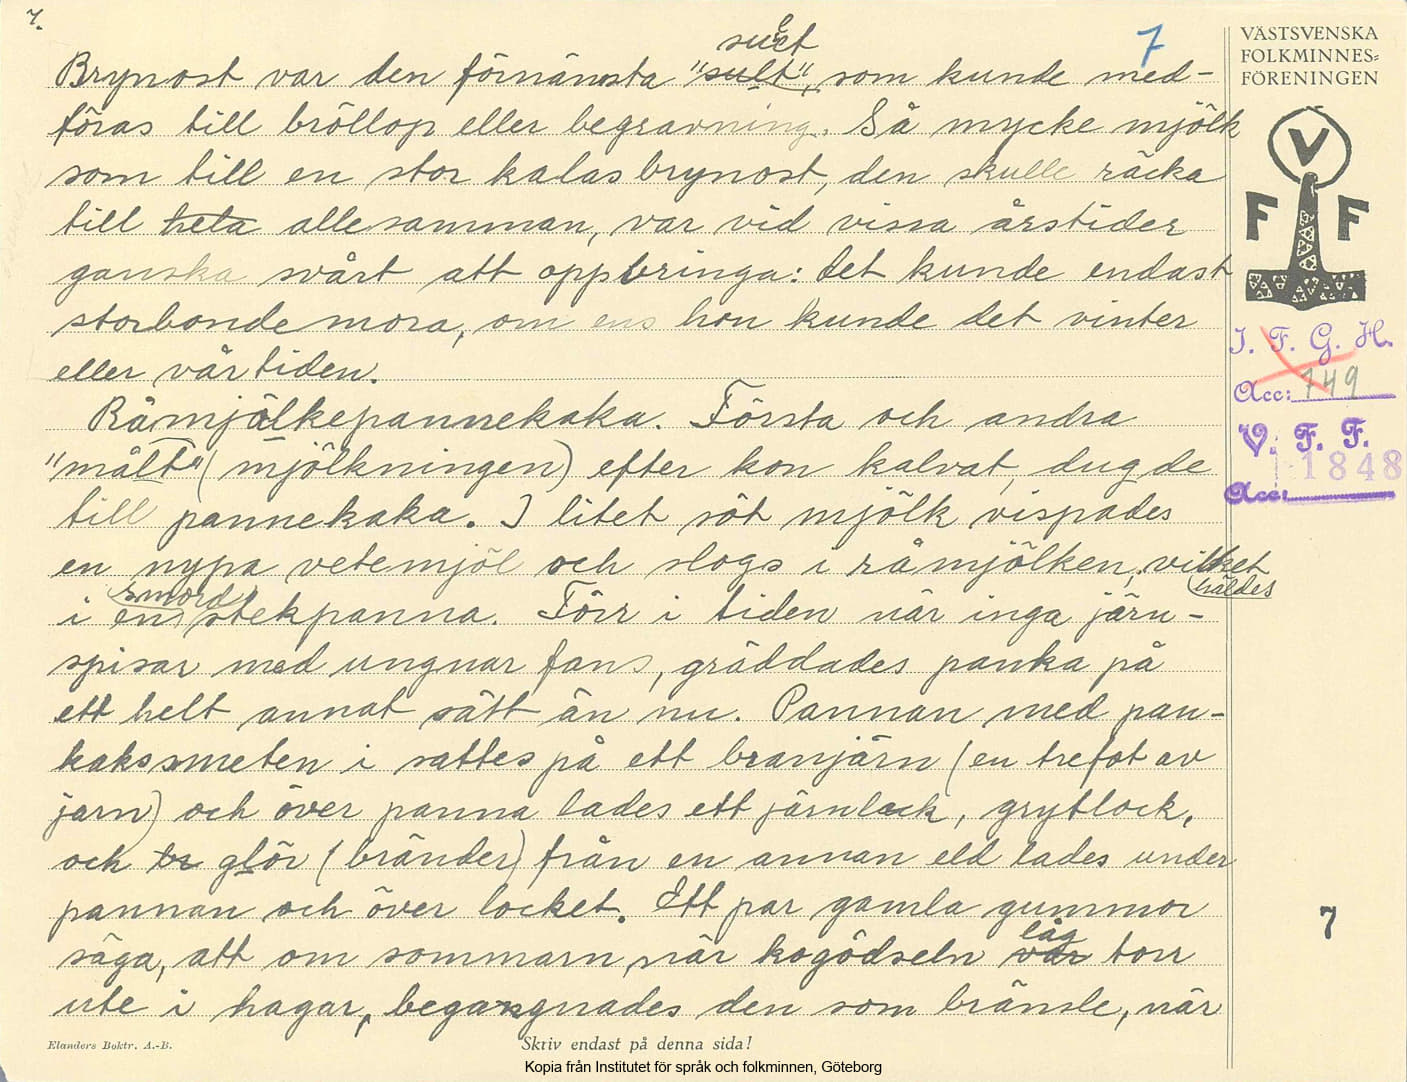 7.
7
VÄSTSVENSKA
FOLKMINNES=
FÖRENINGEN
V
F F
Brynost var den förnämsta "sult", som kunde med-
föras till bröllop eller begravning. Så mycke mjölk
som till en stor kalasbrynost, den skulle räcka
till hela allesamman, var vid vissa årstider
ganska svårt att oppbringa: det kunde endast
storbondemora, om ens hon kunde det vinter
eller vårtiden.
Råmjölkepannekaka. Första och andra
"målt" (mjölkningen) efter kon kalvat, dugde
till pannekaka. I litet söt mjölk vispades
en nypa vetemjöl och slogs i råmjölken, vilket
häldes
i en smord stekpanna. Förr i tiden när inga järn-
spisar med ungnar fans, gräddades panka på
ett helt annat sätt än nu. Pannan med pan-
kakssmeten i sattes på ett branjärn (en trefot av
jarn) och över panna lades ett järnlock, grytlock,
och br glör (bränder) från en annan eld lades under
pannan och över locket. Ett par gamla gummor
säga, att om sommarn, när kogödseln var låg torr
ute i hagar, begangnades den som bränsle, när
I. F. G. H.
Acc: 749
V. F. F.
1848
Acc:
7
Elanders Boktr. A.-B.
Skriv endast på denna sida!
Kopia från Institutet för språk och folkminnen, Göteborg